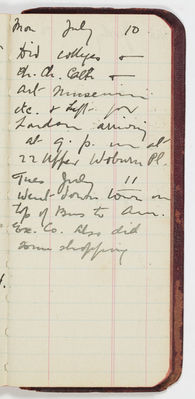 Mon July 10
Did colleges &
Ch. Ch. Cath &
Art Museum
etc. & left for
London arriving
at 9 p. m at
22 Upper Woburn Pl.
Tues July 11
Went down town on
top of Bus to Am.
Ex. Co. Also did
some shopping